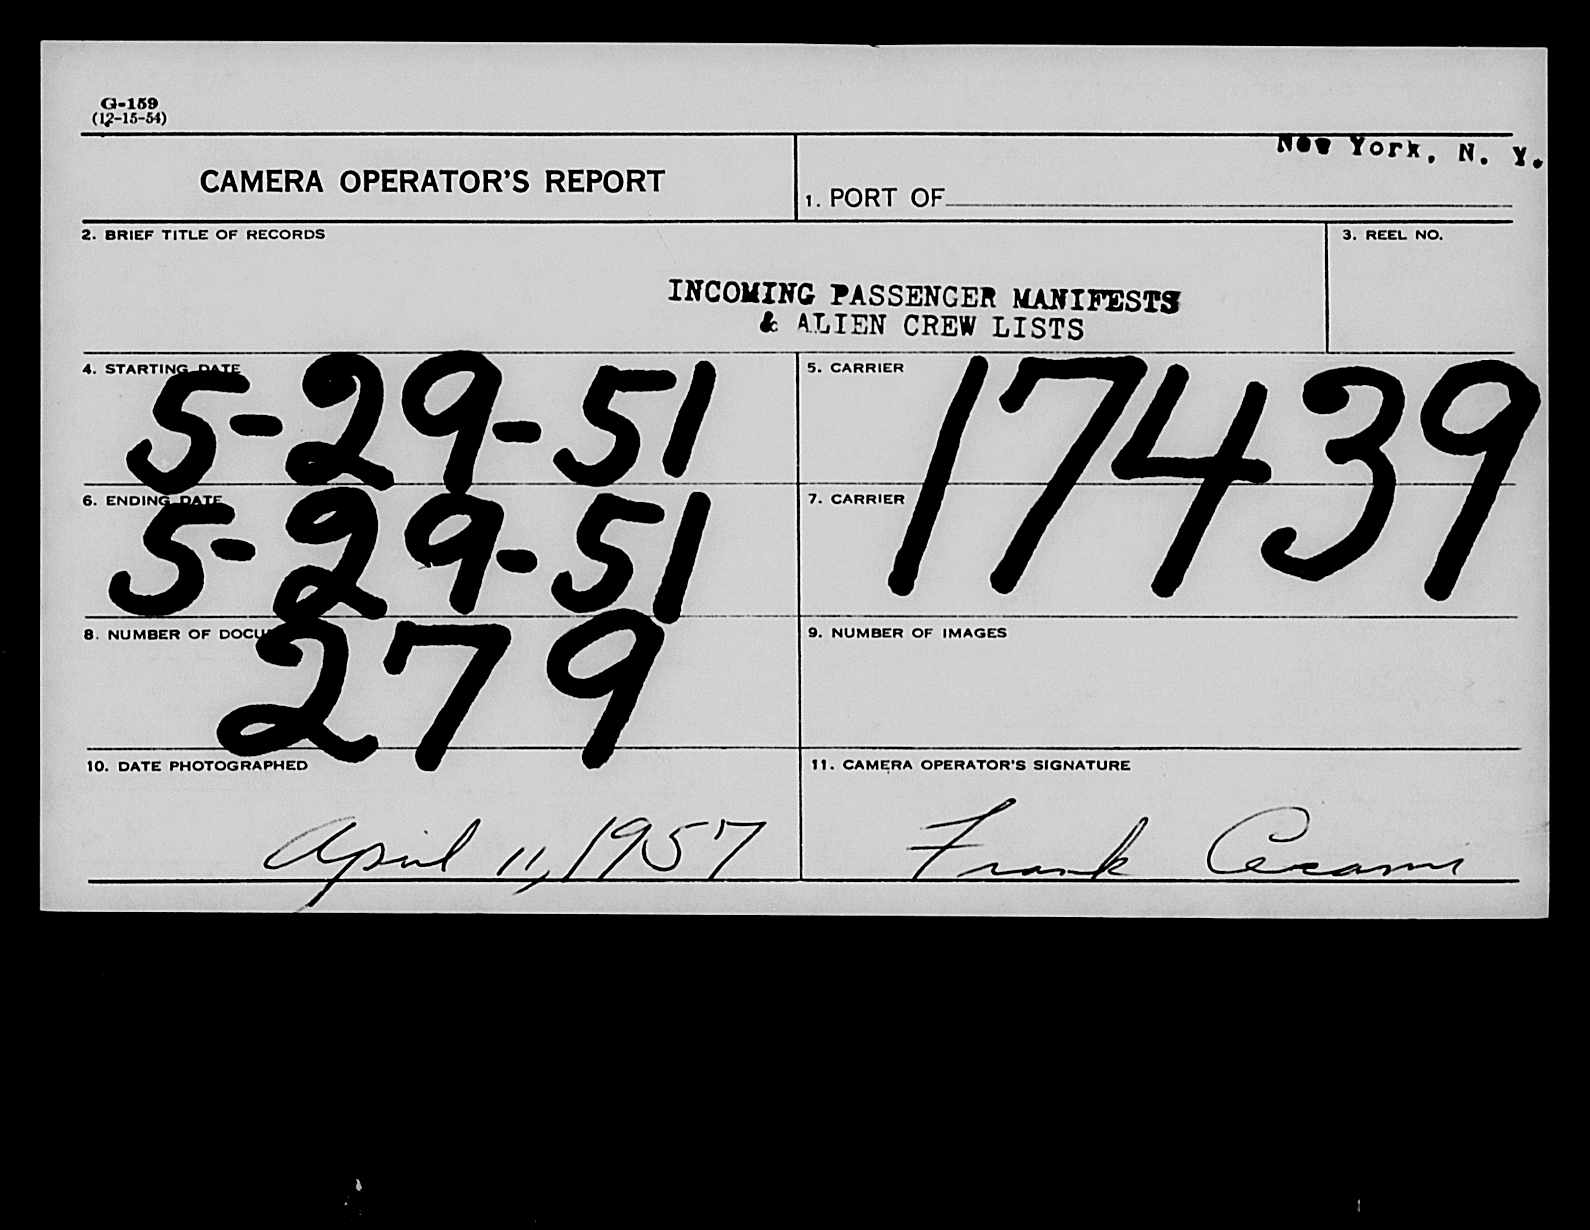 G-159
(12-15-54)
CAMERA OPERATOR'S REPORT
1. PORT OF New York, N. Y.
2. BRIEF TITLE OF RECORDS
INCOMING PASSENGER MANIFESTS
& ALIEN CREW LISTS
3. REEL NO.
4. STARTING DATE
5-29-51
5. CARRIER
17439
6. ENDING DATE
5-29-51
7. CARRIER
8. NUMBER OF DOCU
279
9. NUMBER OF IMAGES
10. DATE PHOTOGRAPHED
April 11, 1957
11. CAMERA OPERATOR'S SIGNATURE
Frank Cesami